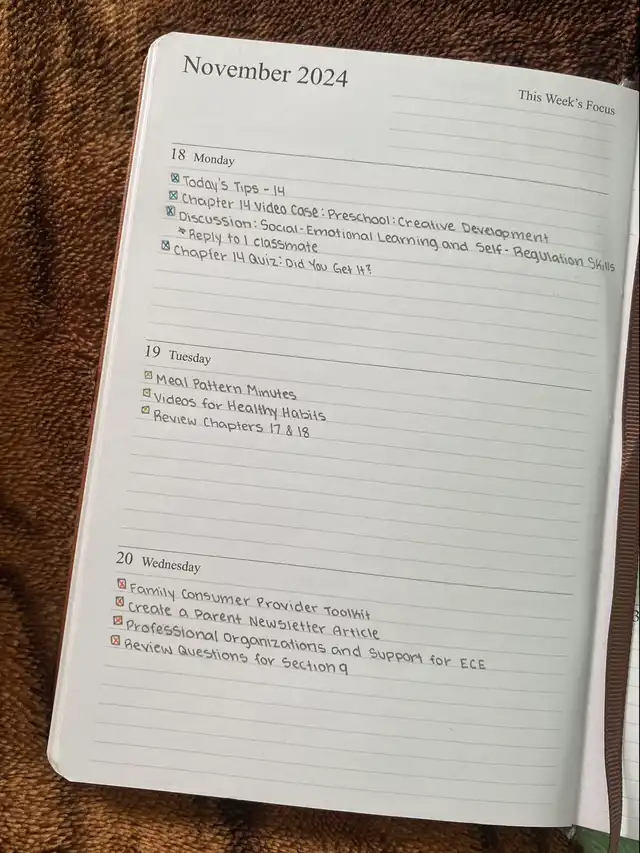 November 2024
This Week's Focus
18 Monday
Today's Tips - 14
Chapter 14 Video Case: Preschool: Creative Development
Discussion: Social-Emotional Learning and Self-Regulation Skills
* Reply to 1 classmate
Chapter 14 Quiz: Did You Get It?
19 Tuesday
Meal Pattern Minutes
Videos for Healthy Habits
Review Chapters 17 & 18
20 Wednesday
Family Consumer Provider Toolkit
Create a Parent Newsletter Article
Professional Organizations and Support for ECE
Review Questions for Section 9